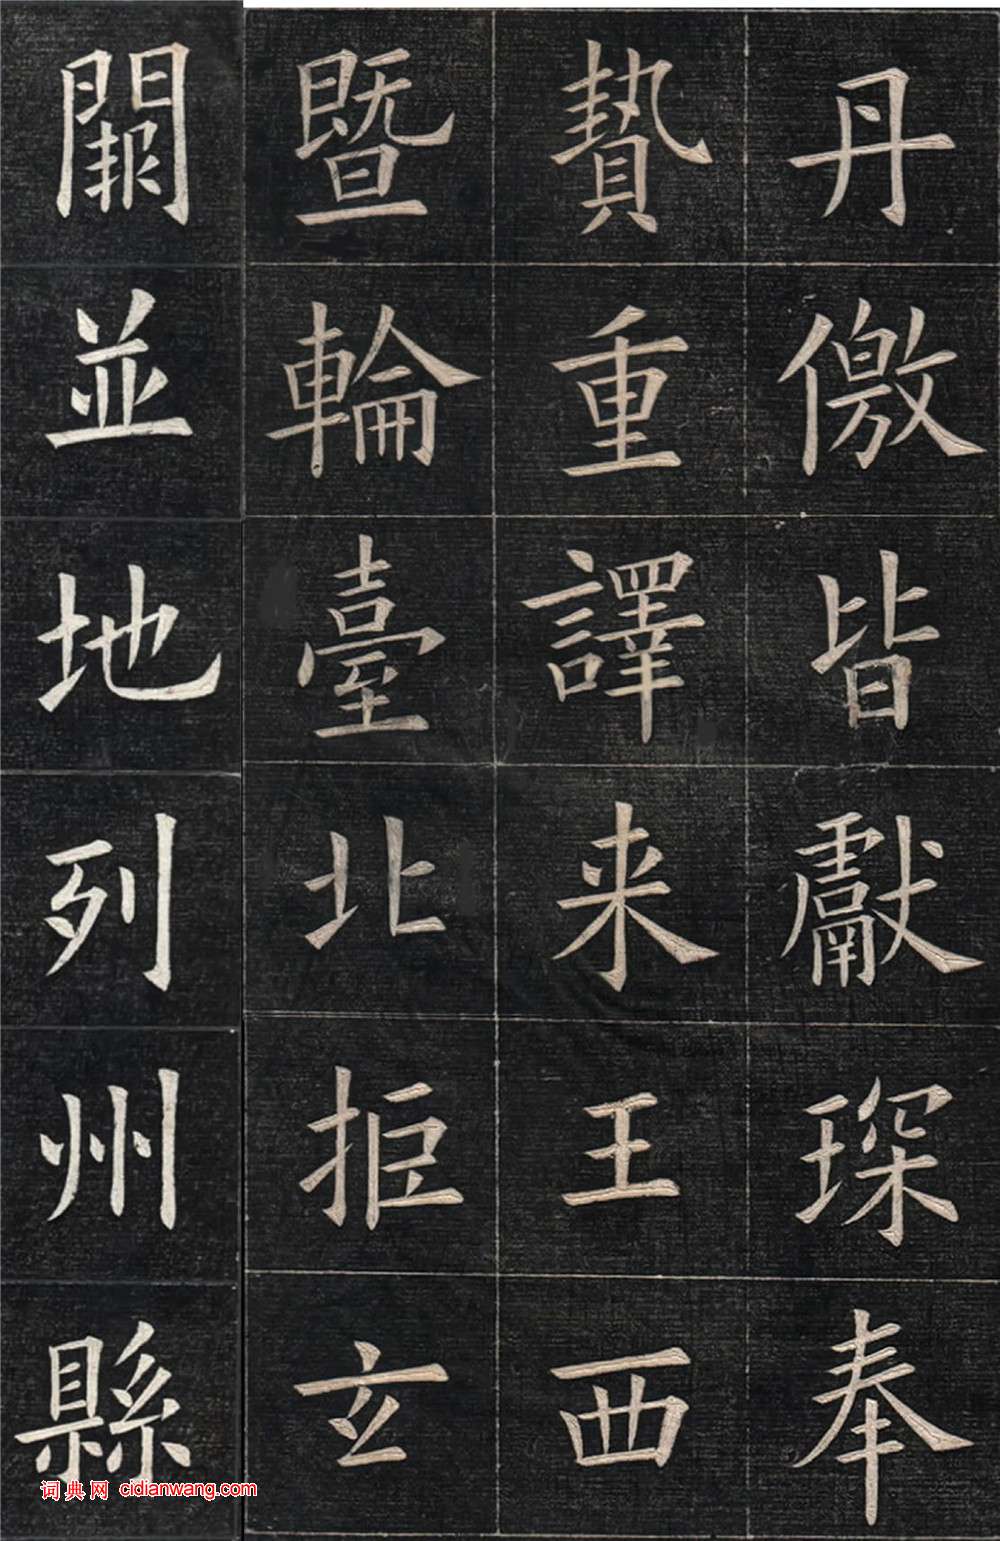 丹儌皆獻琛奉
贄重譯来王西
暨輪臺北拒玄
闕並地列州縣
词典网 cidianwang.com